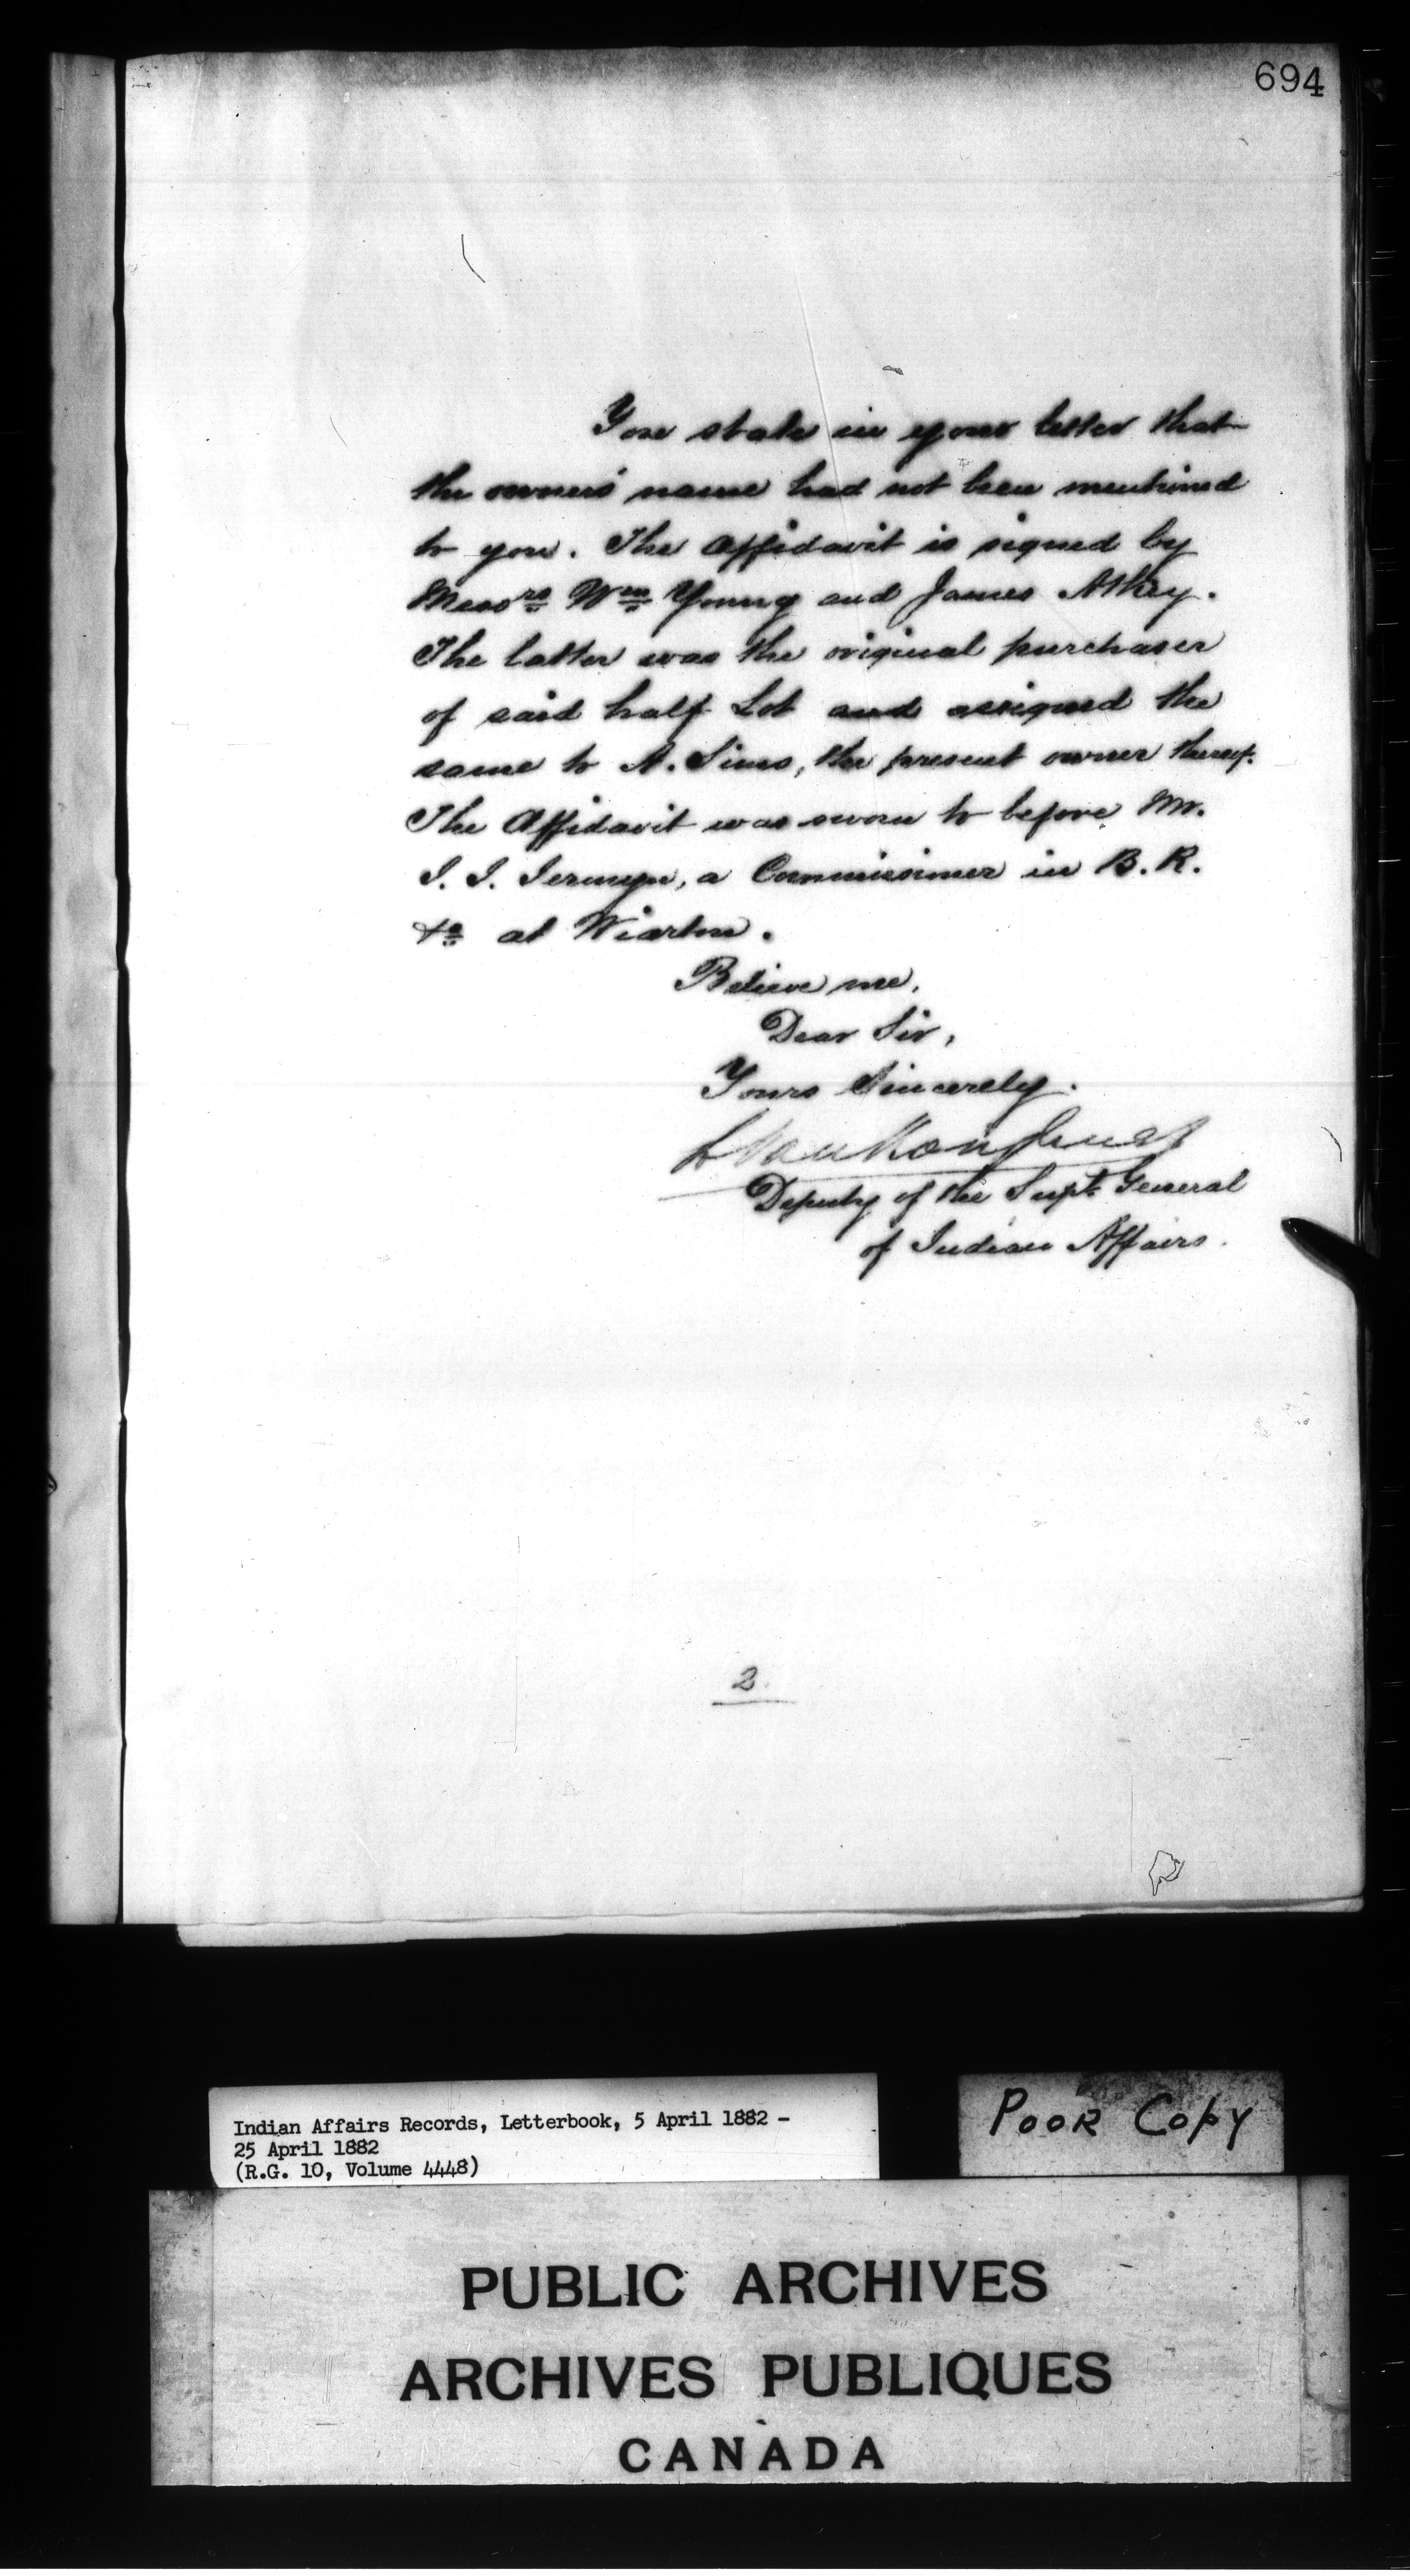 694
You state in your letter that
the owners' name had not been mentioned
to you. The Affidavit is signed by
Messrs Wm Young and James Athey.
The latter was the original purchaser
of said half Lot and assigned the
same to A. Sims, the present owner thereof.
The Affidavit was sworn to before Mr.
J. J. Jermyn, a Commissioner in B. R.
&c at Wiarton.
Believe me,
Dear Sir,
Yours Sincerely.
L VanKoughnet
Deputy of the Supt. General
of Indian Affairs.
2.
Indian Affairs Records, Letterbook, 5 April 1882 –
25 April 1882
(R.G. 10, Volume 4448)
POOR COPY
PUBLIC ARCHIVES
ARCHIVES PUBLIQUES
CANADA